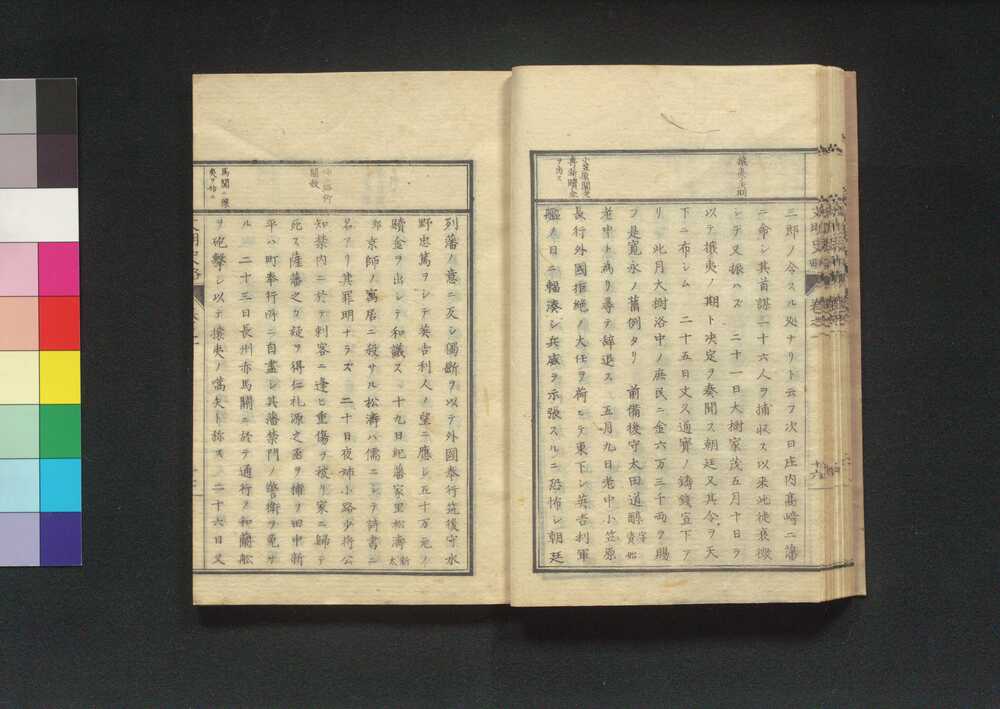 三郎ノ令スル処ナリト云フ次日庄内高崎二藩
ニ命シ其首謀二十六人ヲ捕収ス以来此徒衰微
シテ又振ハズ 二十一日大樹家茂五月十日ヲ
以テ攘夷ノ期ト决定ヲ奏聞ス朝廷又其令ヲ天
下ニ布シム 二十五日文久通寶ノ鋳銭宣下ア
リ 此月大樹洛中ノ庶民ニ金六万三千両ヲ賜
フ是寛永ノ舊例タリ 前備後守太田道醇
老中ト為リ尋テ辞退ス 五月九日老中小笠原
長行外國拒絶ノ大任ヲ荷ヒテ東下シ英吉利軍
艦ノ日ニ輻湊シ兵威ヲ示張スルニ恐怖シ朝廷
小笠原閣老
專断贖金
ヲ出ス
列藩ノ意ニ反シ獨断ヲ以テ外國奉行筑後守水
野忠篤ヲシテ英吉利人ノ望ニ應シ五十万元ノ
贖金ヲ出シテ和議ス 十九日紀藩家里松濤
京師ノ寓居ニ殺サル松濤ハ儒ニシテ詩書ニ
名アリ其罪明ナラズ 二十日夜姉小路少将公
知禁内ニ於テ刺客ニ逢ヒ重傷ヲ被リ家ニ歸テ
死ス薩藩之カ疑ヲ得仁礼源之丞ヲ捕ヲ田中新
平ハ町奉行所ニ自盡シ其藩禁門ノ警衛ヲ免サ
ル 二十三日長州赤馬關ニ於テ通行ノ和蘭舩
ヲ砲撃シ以テ攘夷ノ嚆矢ト称ス 二十六日又
馬關ニ攘
夷ヲ始ム